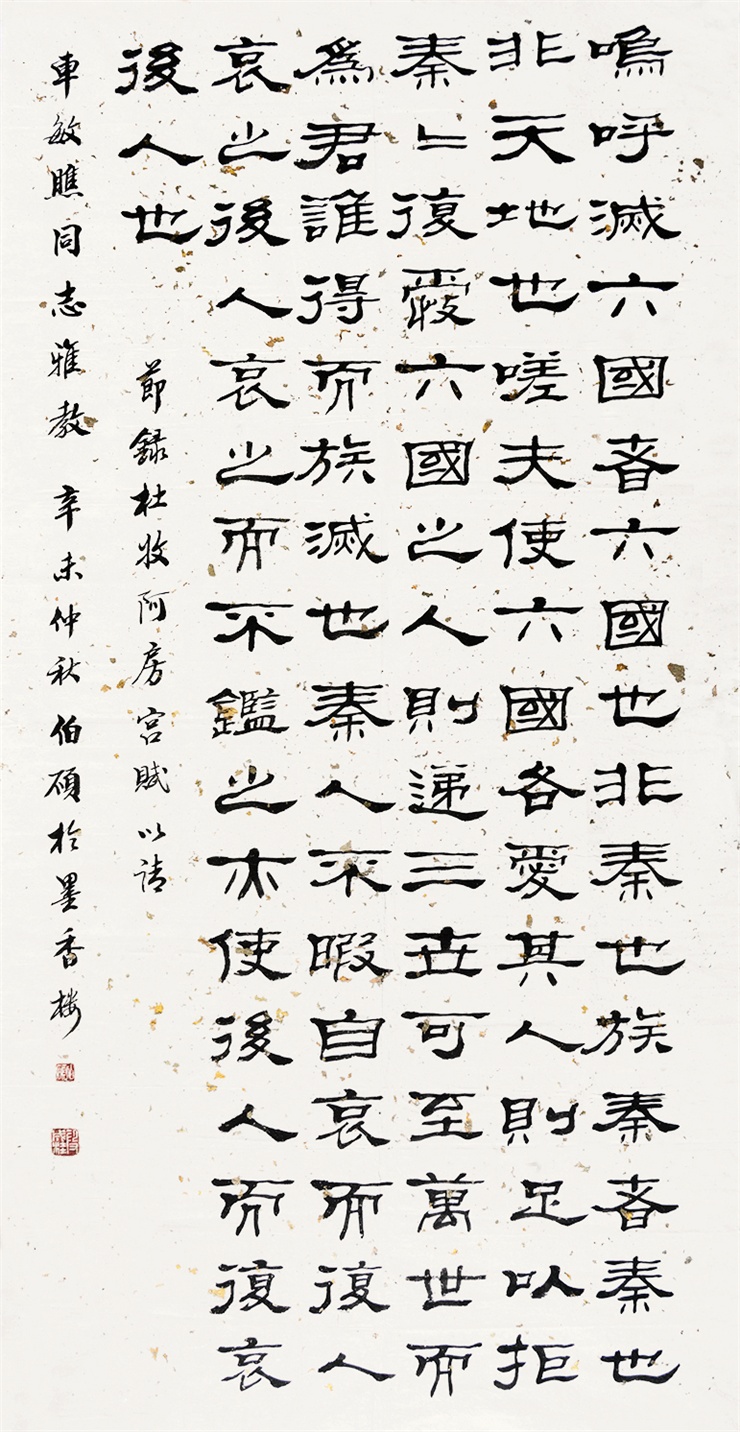 嗚呼滅六國者六國也非秦也族秦者秦也
非天地也嗟夫使六國各愛其人則足以拒
秦〻復愛六國之人則遞三世可至萬世而
爲君誰得而族滅也秦人不暇自哀而復人
哀之後人哀之而不鑑之亦使後人而復哀
後人也
節錄杜牧阿房宮賦以請
車敏瞧同志雅教 辛未仲秋伯碩於墨香楼